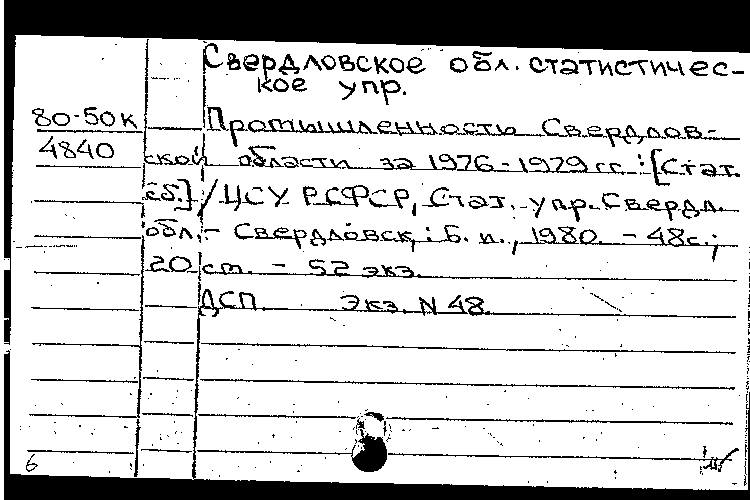 Свердловское обл. статистичес-
кое упр.
80-50к
4840
Промышленности Свердлов-
ской области за 1976-1979 гг.: [Стат.
сб.] / ЦСУ РСФСР, Стат. упр. Свердл.
обл. - Свердловск,: Б. и., 1980. - 48с.;
20 см. - 52 экз.
ДСП. Экз. N 48.
6